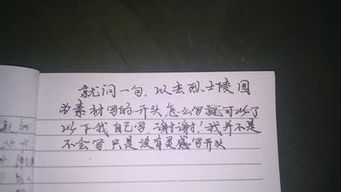 就问一句，以去烈士陵园
为素材写的开头怎么写就可以了
以下我自己写，谢谢！我并不是
不会写只是没有灵感写开头